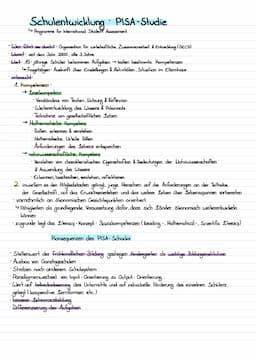 Schulentwicklung - PISA-Studie
↳ Programme for International Student Assessment
- Wer führt es durch? - Organisation für wirtschaftliche Zusammenarbeit & Entwicklung (OECD)
- Wann? - seit dem Jahr 2000, alle 3 Jahre
- Wie? - 15-jährige Schüler bekommen Aufgaben → testen bestimmte Kompetenzen
↳ Fragebögen - Auskunft über Einstellungen & Aktivitäten, Situation im Elternhaus
1. Kompetenzen
→ Lesekompetenz
- Verständnis von Texten, Nutzung & Reflexion
- Weiterentwicklung des Wissens & Potenzials
- Teilnahme am gesellschaftlichen Leben
→ Mathematische Kompetenz
- Rollen erkennen & verstehen
- Mathematische Urteile fällen
- Anforderungen des Lebens entsprechen
→ naturwissenschaftliche Kompetenz
- Verstehen von charakteristischen Eigenschaften & Bedeutungen der Naturwissenschaften
& Anwendung des Wissens
- Erkennen, beschreiben, erklären, reflektieren
2. inwiefern es den Mitgliedstaaten gelingt, junge Menschen auf die Anforderungen an der Teilhabe
der Gesellschaft, auf das Erwachsenenleben und das weitere Lernen über Lebensspannen vorbereiten
- vornehmlich an ökonomischen Gesichtspunkten orientiert
↳ Fähigkeiten als grundlegende Voraussetzung dafür, dass sich Länder ökonomisch weiterentwickeln
können
- zugrunde liegt das Literacy-Konzept - Basiskompetenzen (Reading-, Mathematical-, Scientific Literacy)
Konsequenzen des PISA-Schocks
- Stellenwert der frühkindlichen Bildung gestiegen: Kindergarten als wichtige Bildungsinstitution
- Ausbau von Ganztagsschulen
- Streben nach anderem Schulsystem
- Paradigmenwechsel: von Input-Orientierung zu Output-Orientierung
- Wert auf Individualisierung des Unterrichts und auf individuelle Förderung des einzelnen Schülers
gelegt (kooperative Lernformen etc.)
- Differenzierung der Aufgaben